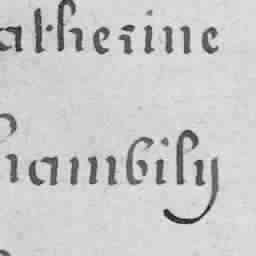 atherine
hambily